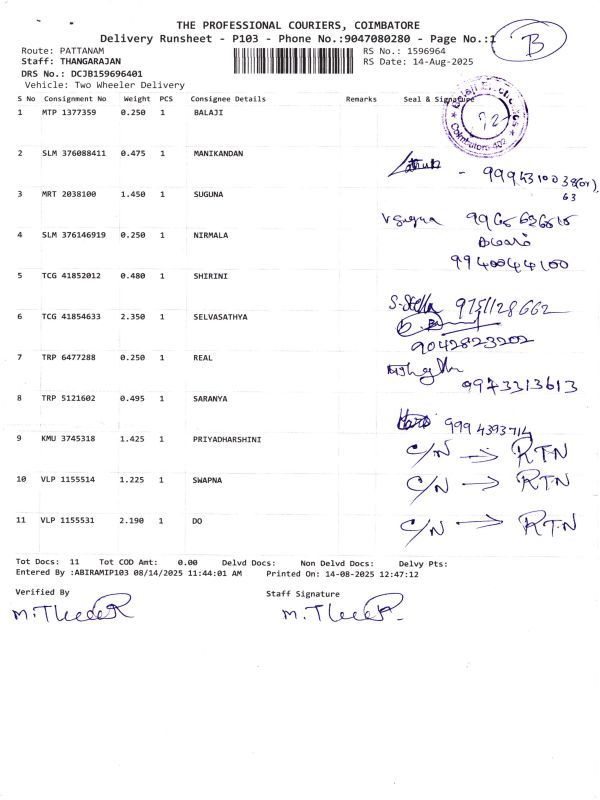 THE PROFESSIONAL COURIERS, COIMBATORE
Delivery Runsheet - P103 - Phone No.:9047080280 - Page No.:1
B
Route: PATTANAM
RS No.: 1596964
Staff: THANGARAJAN
RS Date: 14-Aug-2025
DRS No.: DCJB159696401
Vehicle: Two Wheeler Delivery
S No Consignment No Weight PCS Consignee Details Remarks Seal & Signature
1 MTP 1377359 0.250 1 BALAJI
Coimbatore-402
2 SLM 376088411 0.475 1 MANIKANDAN
9994310038(or)
63
3 MRT 2038100 1.450 1 SUGUNA
V Suguna 9965626615
4 SLM 376146919 0.250 1 NIRMALA
9940044100
5 TCG 41852012 0.480 1 SHIRINI
S-Stella 9751128662
6 TCG 41854633 2.350 1 SELVASATHYA
9042823202
7 TRP 6477288 0.250 1 REAL
9943313613
8 TRP 5121602 0.495 1 SARANYA
9994393714
9 KMU 3745318 1.425 1 PRIYADHARSHINI C/N → RTN
10 VLP 1155514 1.225 1 SWAPNA C/N → RTN
11 VLP 1155531 2.190 1 DO C/N → RTN
Tot Docs: 11 Tot COD Amt: 0.00 Delvd Docs: Non Delvd Docs: Delvy Pts:
Entered By :ABIRAMIP103 08/14/2025 11:44:01 AM Printed On: 14-08-2025 12:47:12
Verified By Staff Signature